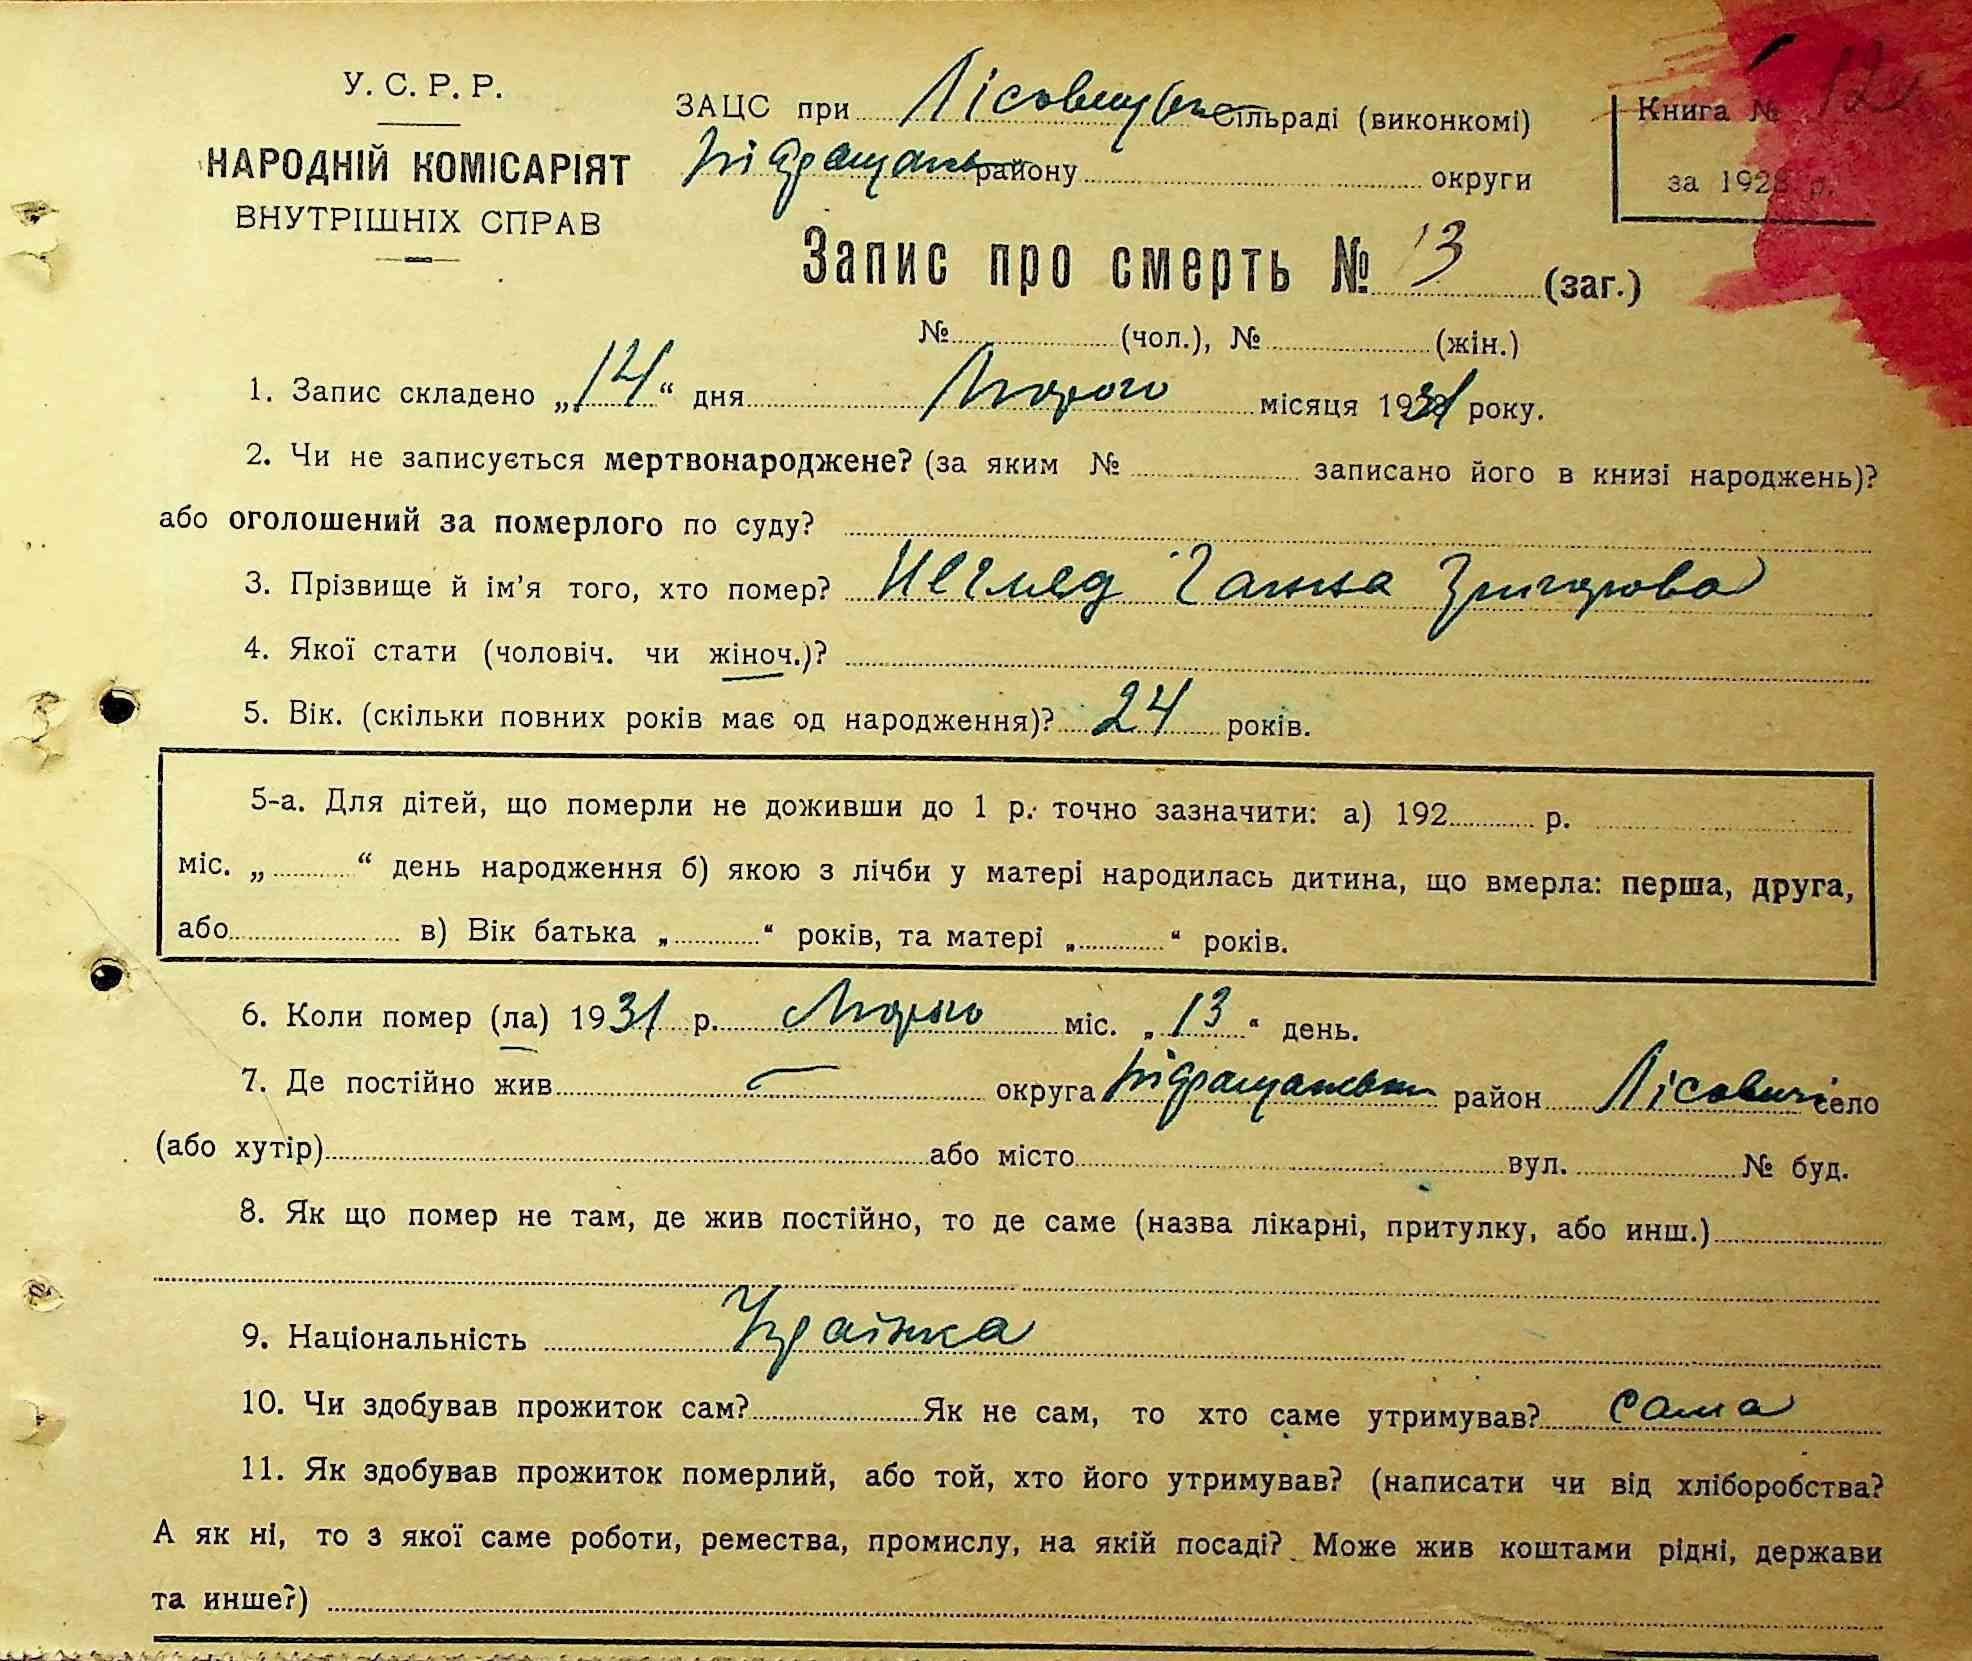 У. С. Р. Р.
НАРОДНІЙ КОМІСАРІЯТ
ВНУТРІШНІХ СПРАВ
ЗАЦС при сільраді (виконкомі)
району округи
Книга №
за 1928 р.
Запис про смерть № 13 (заг.)
№ (чол.), № (жін.)
1. Запис складено „14“ дня Лютого місяця 1931 року.
2. Чи не записується мертвонароджене? (за яким № записано його в книзі народжень)?
або оголошений за померлого по суду?
3. Прізвище й ім’я того, хто помер? Негляд Ганна Григорова
4. Якої стати (чоловіч. чи жіноч.)?
5. Вік. (скільки повних років має од народження)? 24 років.
5-а. Для дітей, що померли не доживши до 1 р. точно зазначити: а) 192 р.
міс. „ “ день народження б) якою з лічби у матері народилась дитина, що вмерла: перша, друга,
або в) Вік батька „ “ років, та матері „ “ років.
6. Коли помер (ла) 1931 р. Лютого міс. „13“ день.
7. Де постійно жив — округа район Лісовичі село
(або хутір) або місто вул. № буд.
8. Як що помер не там, де жив постійно, то де саме (назва лікарні, притулку, або инш.)
9. Національність Українка
10. Чи здобував прожиток сам? Як не сам, то хто саме утримував? сама
11. Як здобував прожиток померлий, або той, хто його утримував? (написати чи від хліборобства?
А як ні, то з якої саме роботи, ремества, промислу, на якій посаді? Може жив коштами рідні, держави
та инше?)